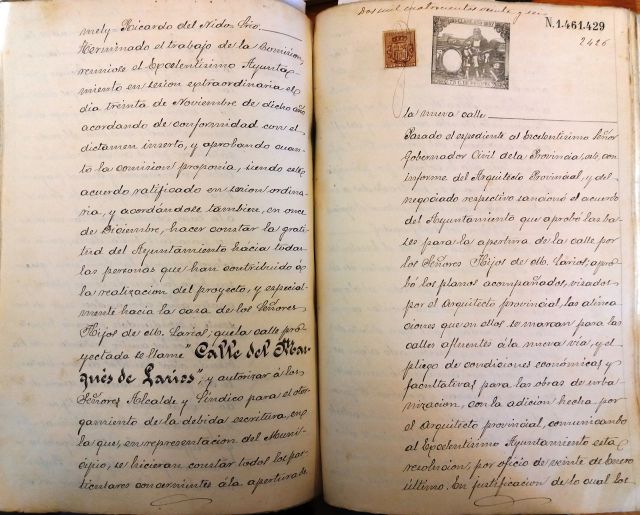 mely= Ricardo del Nido= Srio.
Terminado el trabajo de la Comision,
reuniose el Excelentísimo Ayunta-
miento en sesion extraordinaria el
dia treinta de Noviembre de dicho año
acordando de conformidad con el
dictamen inserto, y aprobando cuan-
to la comision proponia, siendo este
acuerdo ratificado en sesion ordina-
ria, y acordándose tambien, en once
de Diciembre, hacer constar la grati-
tud del Ayuntamiento hacia todas
las personas que han contribuido á
la realizacion del proyecto, y especial-
mente hacia la casa de los Señores
Hijos de M. Larios; que la calle pro-
yectada se llame "Calle del Mar-
qués de Larios"; y autorizar á los
Señores Alcalde y Síndico para el otor-
gamiento de la debida escritura, en
la que, en representacion del Muni-
cipio, se hicieran constar todos los par-
ticulares concernientes á la apertura de
Dos mil cuatrocientos veinte y seis
N.1.461.429
2426
la nueva calle
Pasado el expediente al Excelentísimo Señor
Gobernador Civil de la Provincia, este, con
informe del Arquitecto Provincial, y del
negociado respectivo sancionó el acuerdo
del Ayuntamiento que aprobó las ba-
ses para la apertura de la calle por
los Señores Hijos de M. Larios; apro-
bó los planos acompañados, visados
por el Arquitecto provincial, las alinea-
ciones que en ellos se marcan para las
calles afluentes á la nueva vía, y el
pliego de condiciones económicas y
facultativas para las obras de urba-
nizacion, con la adicion hecha por
el Arquitecto provincial, comunicando
al Excelentísimo Ayuntamiento esta
resolucion, por oficio de veinte de Enero
último. En justificacion de lo cual los